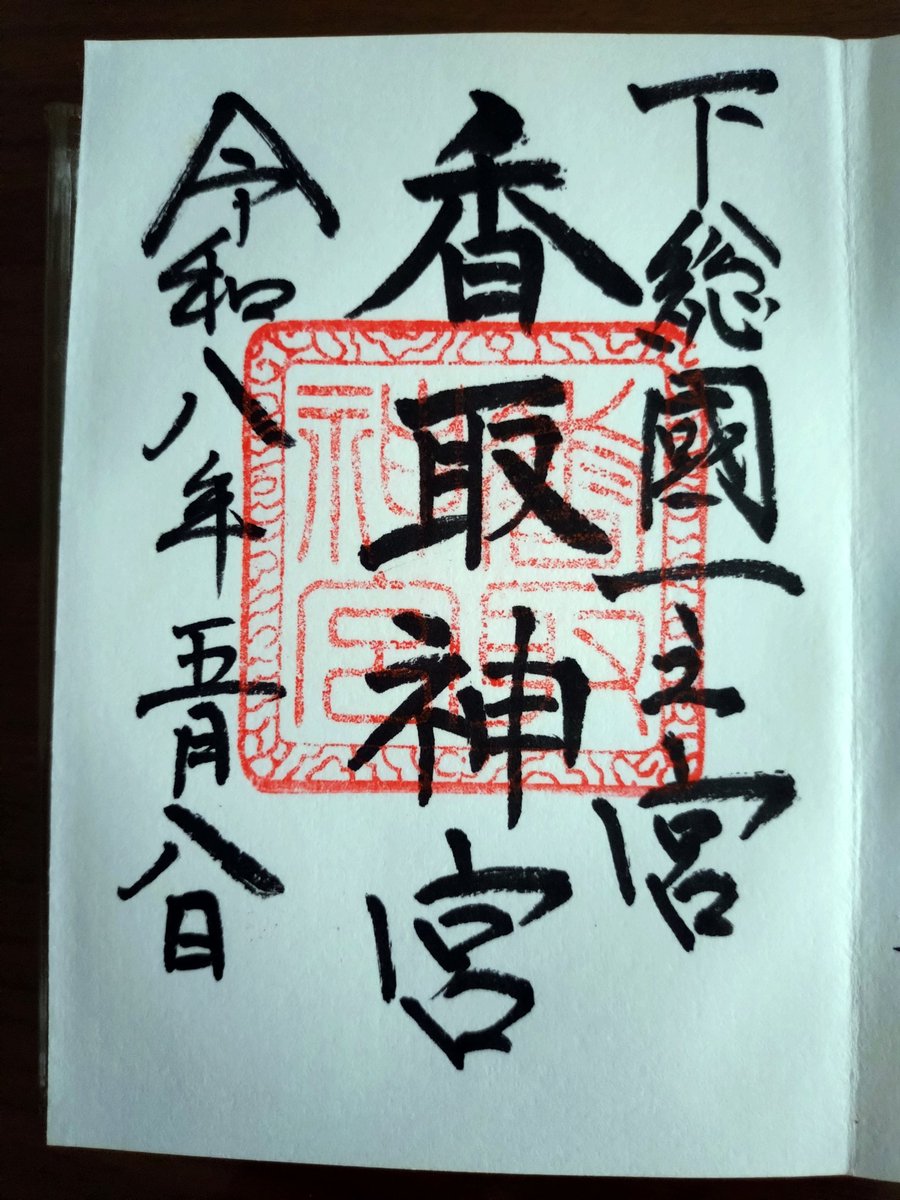 下総國一之宮
香取神宮
令和八年五月八日
香取神宮